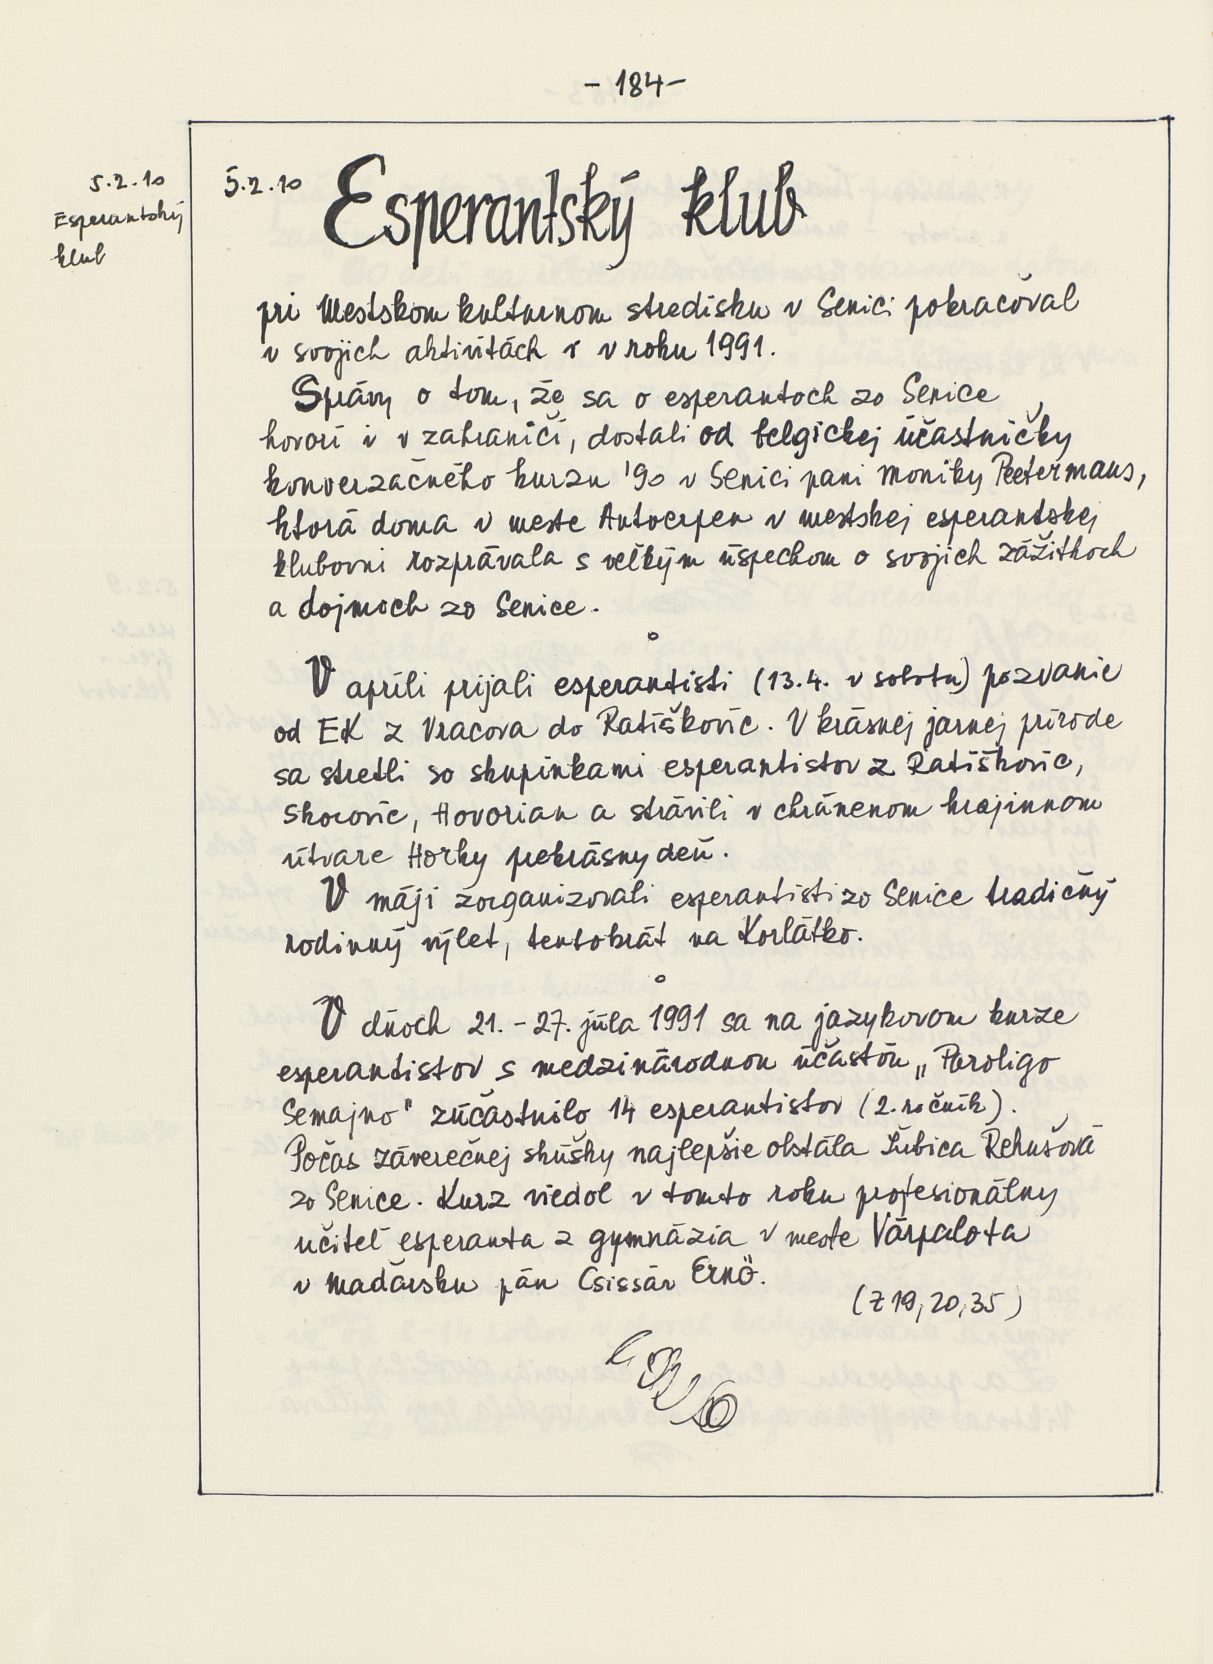 - 184 -
5.2.10
Esperantský
klub
5.2.10 Esperantský klub
pri Mestskom kultúrnom stredisku v Senici pokračoval
v svojich aktivitách i v roku 1991.
Správy o tom, že sa o esperantoch zo Senice
hovorí i v zahraničí, dostali od belgickej účastníčky
konverzačného kurzu '90 v Senici pani Moniky Peetermans,
ktorá doma v meste Antwerpen v mestskej esperantskej
klubovni rozprávala s veľkým úspechom o svojich zážitkoch
a dojmoch zo Senice.
V apríli prijali esperantisti (13.4. v sobotu) pozvanie
od EK z Vracova do Ratíškovíc. V krásnej jarnej prírode
sa stretli so skupinkami esperantistov z Ratíškovíc,
Skoroníc, Hovorian a strávili v chránenom krajinnom
útvare Horky prekrásny deň.
V máji zorganizovali esperantisti zo Senice tradičný
rodinný výlet, tentokrát na Korlátko.
V dňoch 21. - 27. júla 1991 sa na jazykovom kurze
esperantistov s medzinárodnou účasťou „Paroligo
Semajno" zúčastnilo 14 esperantistov (2. ročník).
Počas záverečnej skúšky najlepšie obstála Ľubica Rehušová
zo Senice. Kurz viedol v tomto roku profesionálny
učiteľ esperanta z gymnázia v meste Várpalota
v Maďarsku pán Csiszár Ernö.
(Z 19, 20, 35)